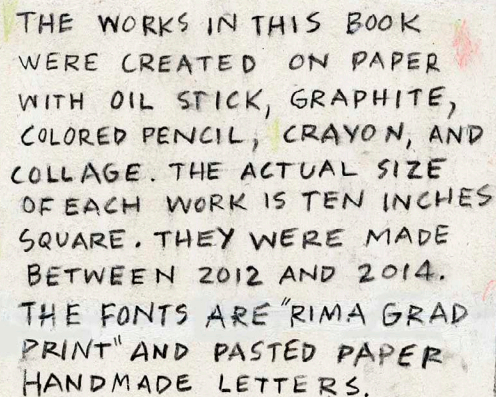 THE WORKS IN THIS BOOK
WERE CREATED ON PAPER
WITH OIL STICK, GRAPHITE,
COLORED PENCIL, CRAYON, AND
COLLAGE. THE ACTUAL SIZE
OF EACH WORK IS TEN INCHES
SQUARE. THEY WERE MADE
BETWEEN 2012 AND 2014.
THE FONTS ARE "RIMA GRAD
PRINT" AND PASTED PAPER
HANDMADE LETTERS.